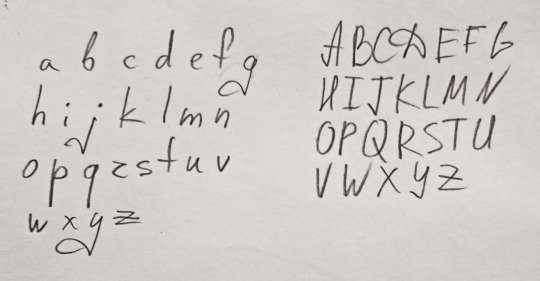 a b c d e f g
h i j k l m n
o p q r s t u v
w x y z
A B C D E F G
H I J K L M N
O P Q R S T U
V W X Y Z